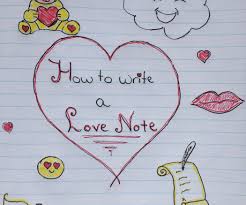 How to write
a
Love Note